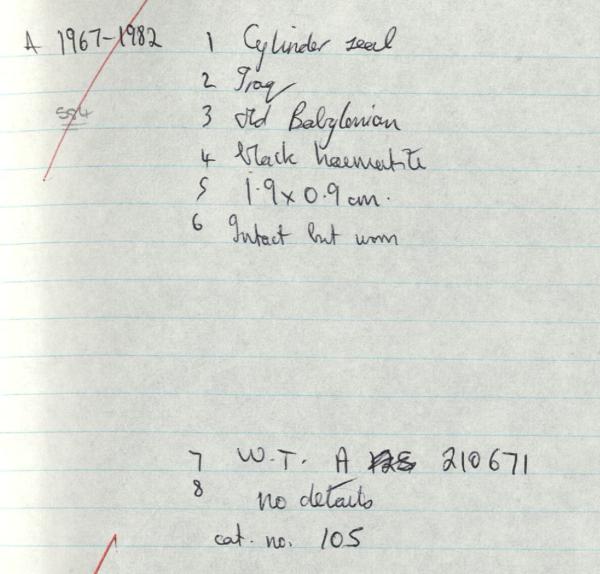 A 1967-1982 1 Cylinder seal
2 Iraq
584 3 old Babylonian
4 black haematite
5 1.9 x 0.9 cm.
6 Intact but worn
7 W.T. A 210671
8 no details
cat. no. 105